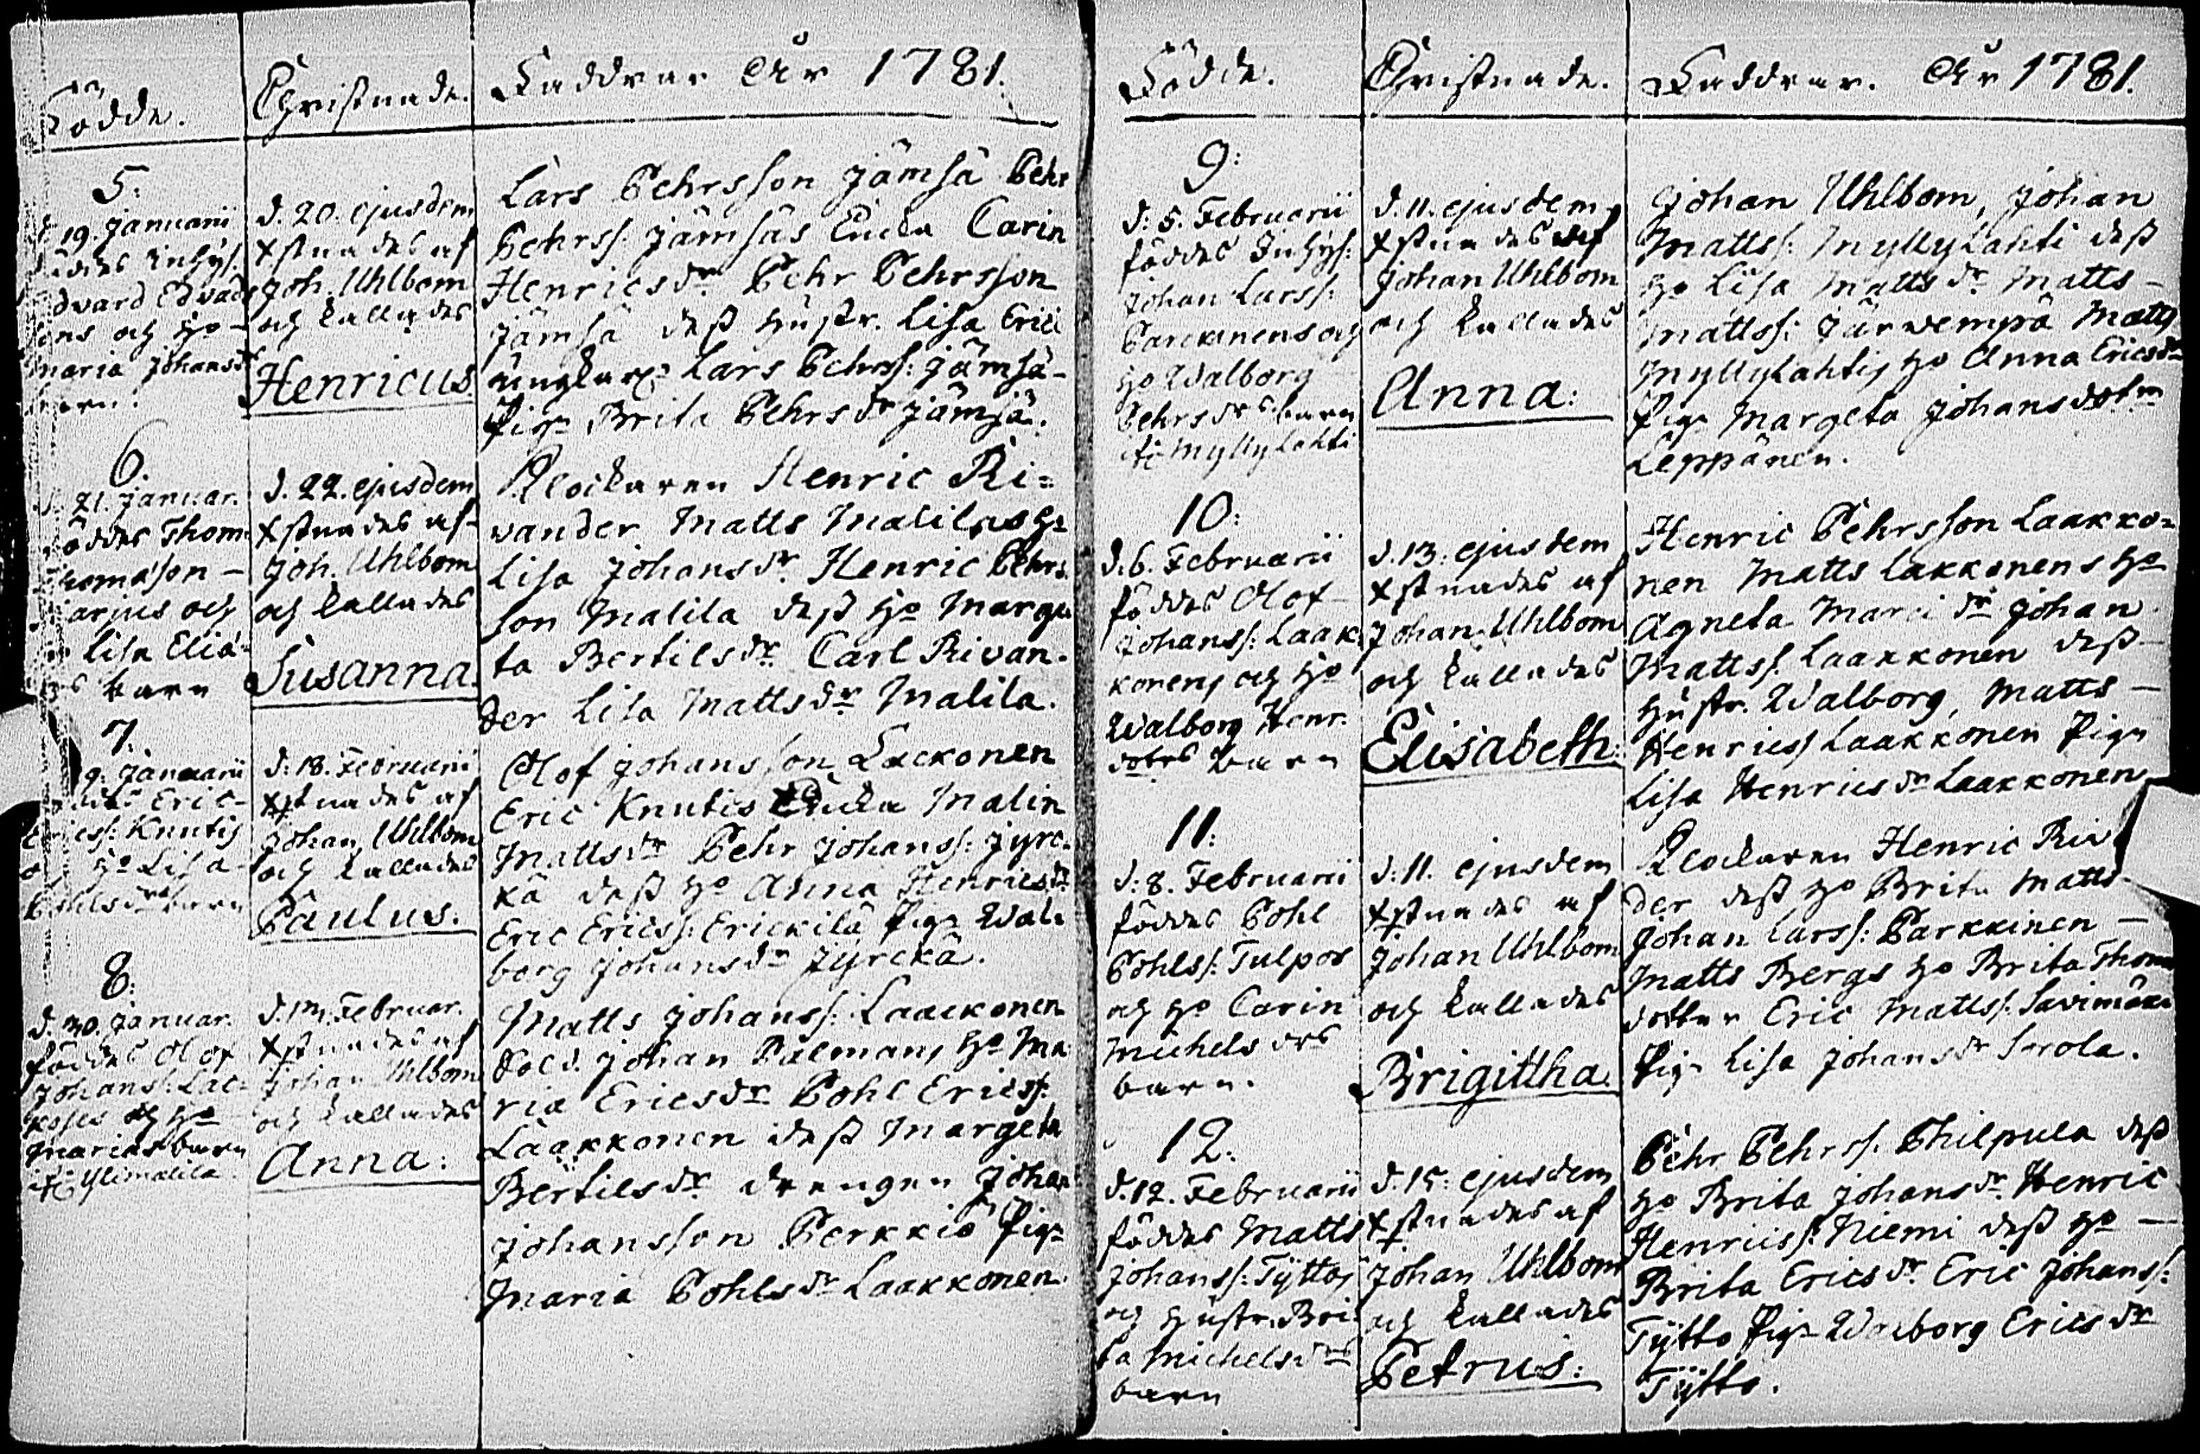 Födde.
Christnade.
Faddrar År 1781.
5:
19. Januarii
Inhys:
dvard Edvads
ens och Ho
Maria Johans dr
barn.
d. 20. ejusdem
Xstnades af
Joh. Uhlbom
och kallades
Henricus.
Lars Pehrsson Jämsä Pehr
Pehrss: Jämsäs Encka Carin
Henrics dr Pehr Pehrsson
Jämsä dess hustr. Lisa Erici
ungkar: Lars Pehrss: Jämsä-
Pig: Brita Pehrs dr Jämsä.
6.
21. Januar.
föddes Thom:
Thomasson -
och
Lisa Eliæ
barn
d. 22. ejusdem
Xstnades af
Joh. Uhlbom
och kallades
Susanna.
Klockaren Henric Ri=
vander Matts Malilas Ho
Lisa Johans dr Henric Pehrs
son Malila dess Ho Marge
ta Bertils dr Carl Rivan.
der Lisa Matts dr Malila.
7.
9. Januarii
Eric
Ericss: Knutis
Ho Lisa
Pohls drs barn
d. 18. Februarii
Xstnades af
Johan Uhlbom
och kallades
Paulus.
Olof Johansson Lackonen
Eric Knutis Encka Malin
Matts dr Pehr Johanss: Jyrc.
kä dess Ho Anna Henrics dr
Eric Ericss: Erickilä Pig: Wal:
borg Johans dr Jyrckä.
8.
d. 30. Januar.
föddes Olof
Johanss: Lac:
och Ho
Marias barn
ifr. Ylimalila.
Februar.
Xstnades af
Johan Uhlbom
och kallades
Anna:
Matts Johanss: Laackonen
Sold. Johan Palmans Ho Ma
ria Erics dr Pohl Ericss:
Laakkonen dess Margeta
Bertils dr drengen Johan
Johansson Perkkiö Pig:
Maria Pohls dr Laakkonen.
Födde.
Christnade.
Faddrar. År 1781.
9:
d. 5. Februarii
föddes Inhys:
Johan Larss:
Parckinens och
Ho Walborg
Pehrs drs barn
ifr. Myllylahti
d. 11. ejusdem
Xstnades af
Johan Uhlbom
och kallades
Anna:
Johan Uhlbom, Johan
Mattss: Myllylahti dess
Ho Lisa Matts dr Matts -
Mattss: Järwempä Matts
Myllylahtis Ho Anna Erics dr
Pig: Margeta Johans dotter
Leppänen.
10:
d. 6. Februarii
föddes Olof
Johanss: Laak
konens och Ho
Walborg Henr.
dotrs barn
d. 13. ejusdem
Xstnades af
Johan Uhlbom
och kallades
Elisabeth.
Henric Pehrsson Laakko=
nen Matts Lakkonens Ho
Agneta Marci dr Johan
Mattss: Laakkonen dess -
hustr. Walborg, Matts -
Henricss: Laakkonen Pig:
Lisa Henrics dr Laakkonen
11:
d. 8. Februarii
föddes Pohl
Pohlss: Tulpos
och Ho Carin
Michels drs
barn.
d. 11. ejusdem
Xstnades af
Johan Uhlbom
och kallades
Brigittha.
Klockaren Henric Riv
der dess Ho Brita Matts
Johan Larss: Parkkinen -
Matts Bergs Ho Brita Thom
dotter Eric Mattss: Savimäki
Pig: Lisa Johans dr Sorola.
12:
d. 12. Februarii
föddes Matts
Johanss: Tyttos
och hustr. Bri
ta Michels drs
barn
d. 15. ejusdem
Xstnades af
Johan Uhlbom
och kallades
Petrus:
Pehr Pehrss: Philpula dess
Ho Brita Johans dr Henric
Henricss: Niemi dess Ho -
Brita Erics dr Eric Johanss:
Tytto Pig: Walborg Erics dr
Tytto.